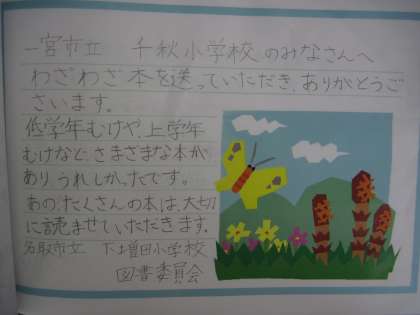 一宮市立 千秋小学校のみなさんへ
わざわざ本を送っていただき、ありがとうご
ざいます。
低学年むけや、上学年
むけなど、さまざまな本が
ありうれしかったです。
あの、たくさんの本は、大切
に読ませていただきます。
名取市立 下増田小学校
図書委員会